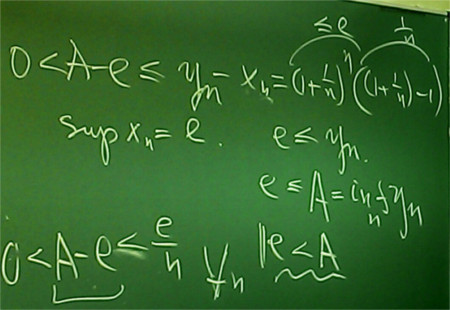 ≤e 1/n
0 < A - e ≤ yₙ - xₙ = (1 + 1/n)ⁿ ((1 + 1/n) - 1)
sup xₙ = e. e ≤ yₙ.
e ≤ A = inf yₙ
n
0 < A - e ≤ e/n ∀n |e < A